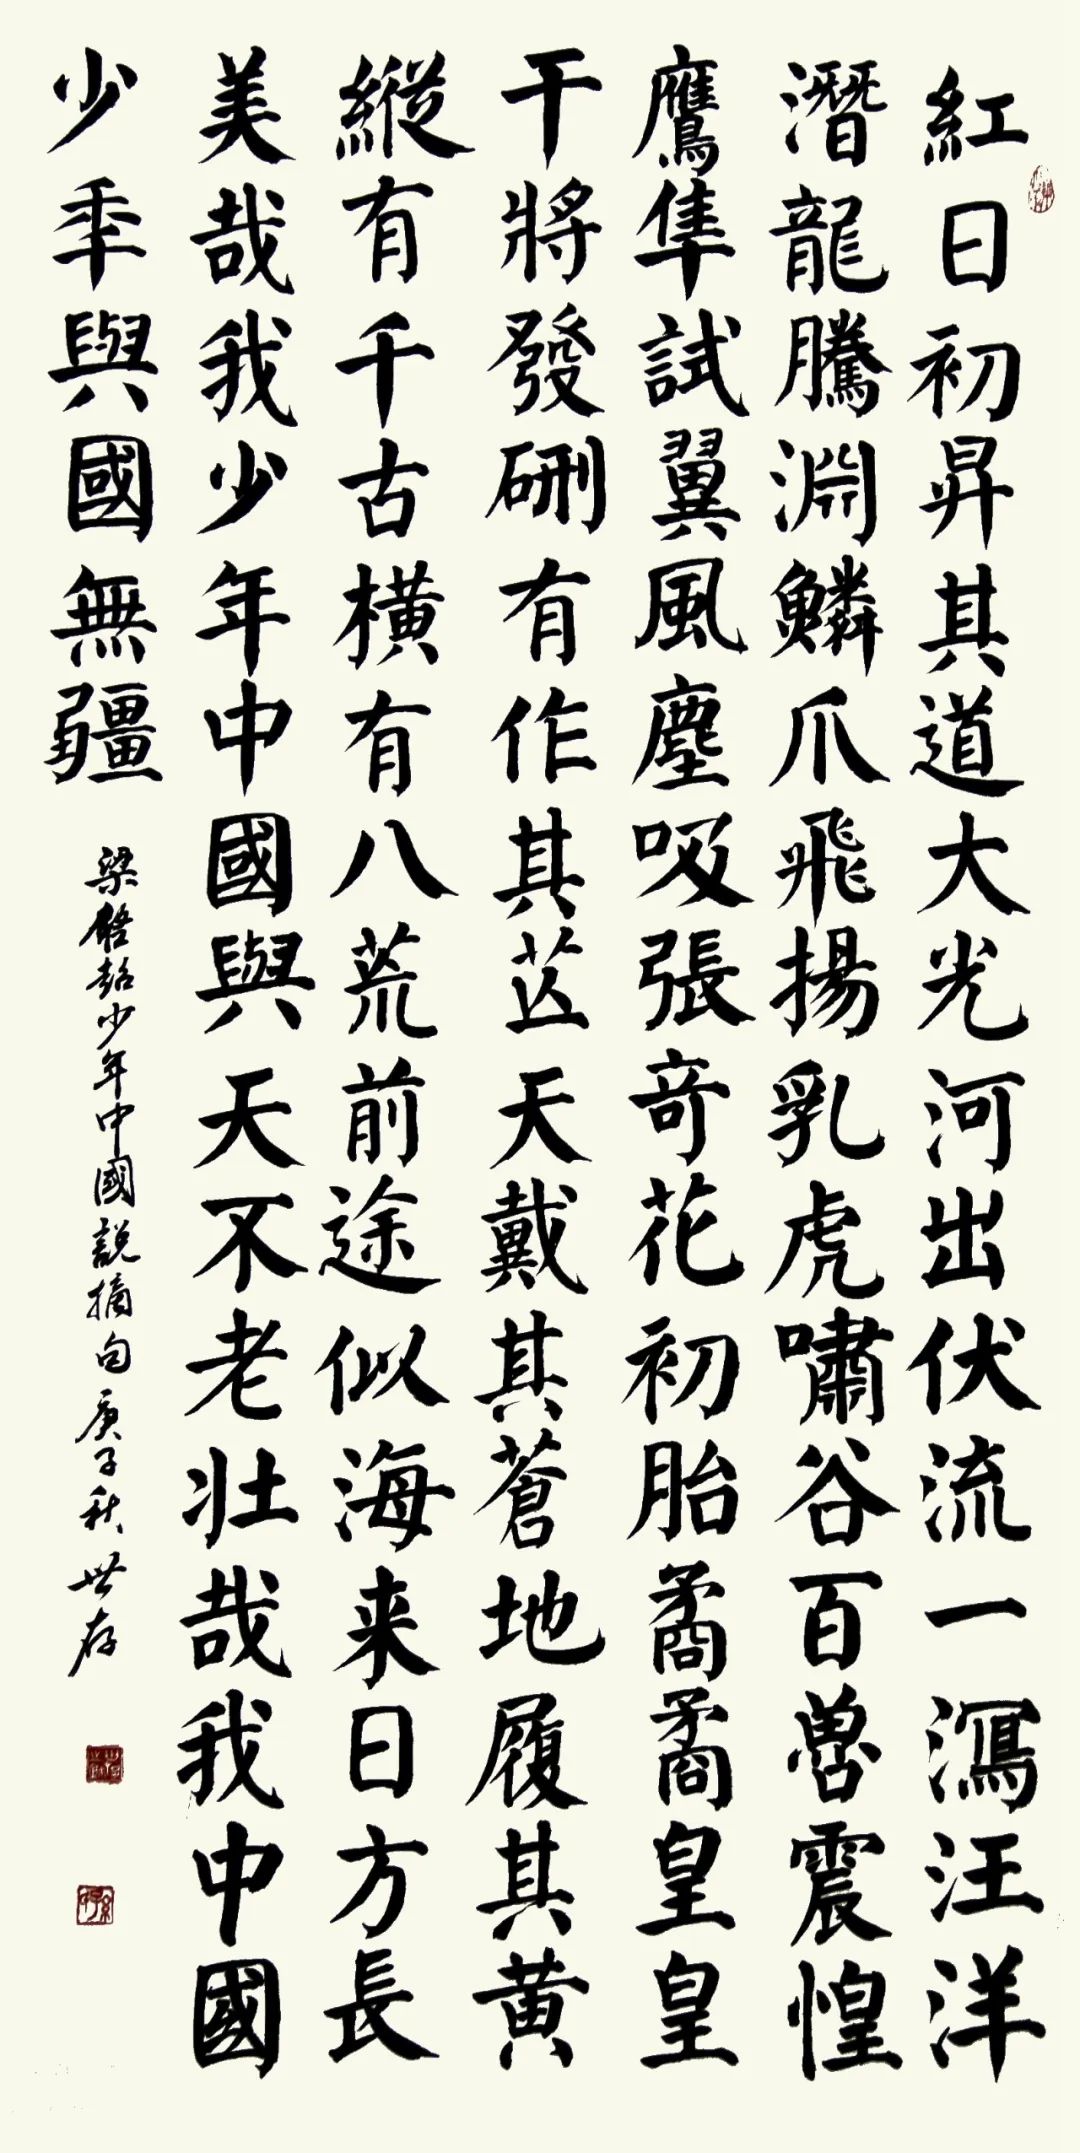 紅日初昇其道大光河出伏流一瀉汪洋
潛龍騰淵鱗爪飛揚乳虎嘯谷百兽震惶
鷹隼試翼風塵吸張奇花初胎矞矞皇皇
干將發硎有作其芒天戴其蒼地履其黄
縱有千古橫有八荒前途似海来日方長
美哉我少年中國與天不老壯哉我中國
少秊與國無疆
梁啓超少年中國説摘句庚子秋世存